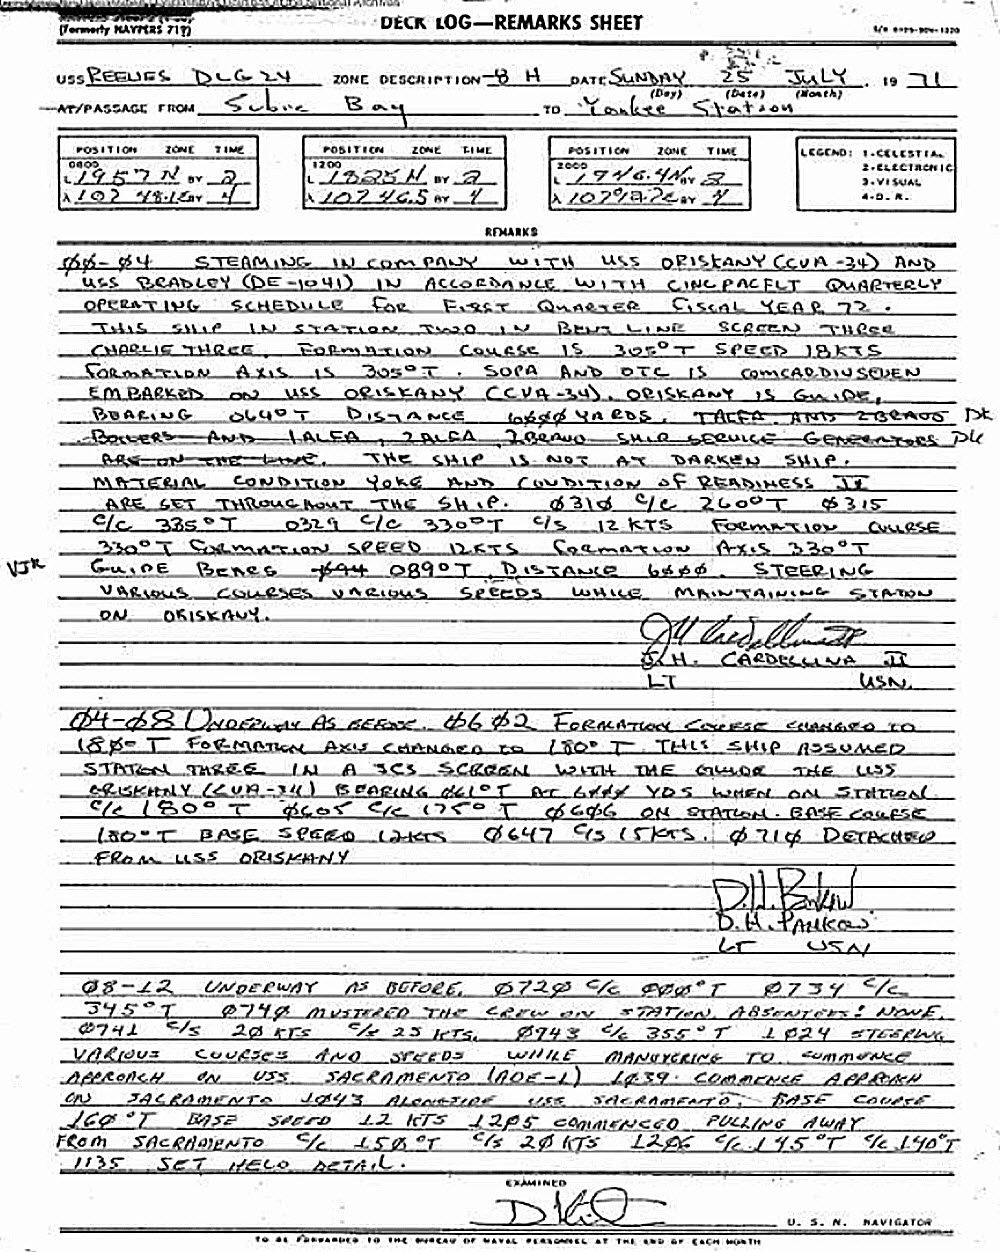 (Formerly NAVPERS 719)
DECK LOG—REMARKS SHEET
USS REEVES DLG 24 ZONE DESCRIPTION -8 H DATE SUNDAY 25 JULY 19 71
(Day) (Date) (Month)
AT/PASSAGE FROM Subic Bay TO Yankee Station
POSITION ZONE TIME POSITION ZONE TIME POSITION ZONE TIME LEGEND: 1-CELESTIAL
0800 1200 2000 2-ELECTRONIC
L 1957 N BY 2 L 1825 N BY 2 L 1946.4N BY 2 3-VISUAL
λ 107 48.1E BY 4 λ 107 46.5 BY 4 λ BY 4 4-D.R.
REMARKS
ØØ-Ø4 STEAMING IN COMPANY WITH USS ORISKANY (CVA-34) AND
USS BRADLEY (DE-1041) IN ACCORDANCE WITH CINCPACFLT QUARTERLY
OPERATING SCHEDULE FOR FIRST QUARTER FISCAL YEAR 72.
THIS SHIP IN STATION TWO IN BENT LINE SCREEN THREE
CHARLIE THREE. FORMATION COURSE IS 305°T SPEED 18KTS
FORMATION AXIS IS 305°T. SOPA AND OTC IS COMCARDIVSEVEN
EMBARKED ON USS ORISKANY (CVA-34). ORISKANY IS GUIDE,
BEARING 064°T DISTANCE 6ØØØ YARDS. 1ALFA AND 2BRAVO
BOILERS AND 1ALFA, 2ALFA, 2BRAVO SHIP SERVICE GENERATORS
ARE ON THE LINE. THE SHIP IS NOT AT DARKEN SHIP.
MATERIAL CONDITION YOKE AND CONDITION OF READINESS
ARE SET THROUGHOUT THE SHIP. Ø31Ø C/C 260°T Ø315
C/C 335°T 0329 C/C 330°T C/S 12 KTS FORMATION COURSE
330°T FORMATION SPEED 12KTS FORMATION AXIS 330°T
VJK GUIDE BEARS 089°T DISTANCE 6ØØØ. STEERING
VARIOUS COURSES VARIOUS SPEEDS WHILE MAINTAINING STATION
ON ORISKANY.
J. H. CARDELLINA II
LT USN
Ø4-Ø8 UNDERWAY AS BEFORE. Ø6Ø2 FORMATION COURSE CHANGED TO
18Ø° T FORMATION AXIS CHANGED TO 180° T THIS SHIP ASSUMED
STATION THREE IN A 3C3 SCREEN WITH THE GUIDE THE USS
ORISKANY (CVA-34) BEARING Ø61°T AT 6ØØØ YDS WHEN ON STATION.
C/C 180° T Ø605 C/C 175° T Ø6Ø6 ON STATION. BASE COURSE
180° T BASE SPEED 12KTS Ø647 C/S 15KTS. Ø71Ø DETACHED
FROM USS ORISKANY
D. H. PANKOW
LT USN
Ø8-12 UNDERWAY AS BEFORE. Ø72Ø C/C ØØØ°T Ø734 C/C
345°T Ø74Ø MUSTERED THE CREW ON STATION. ABSENTEES: NONE.
Ø741 C/S 2Ø KTS C/S 25 KTS. Ø743 C/C 355°T 1Ø24 STEERING
VARIOUS COURSES AND SPEEDS WHILE MANUVERING TO COMMENCE
APPROACH ON USS SACRAMENTO (AOE-1) 1Ø39. COMMENCE APPROACH
ON SACRAMENTO 1Ø43 ALONGSIDE USS SACRAMENTO, BASE COURSE
16Ø°T BASE SPEED 12 KTS 12Ø5 COMMENCED PULLING AWAY
FROM SACRAMENTO C/C 15Ø°T C/S 2Ø KTS 12Ø6 C/C 145°T C/C 140°T
1135 SET HELO DETAIL.
EXAMINED
U. S. N. NAVIGATOR
TO BE FORWARDED TO THE BUREAU OF NAVAL PERSONNEL AT THE END OF EACH MONTH